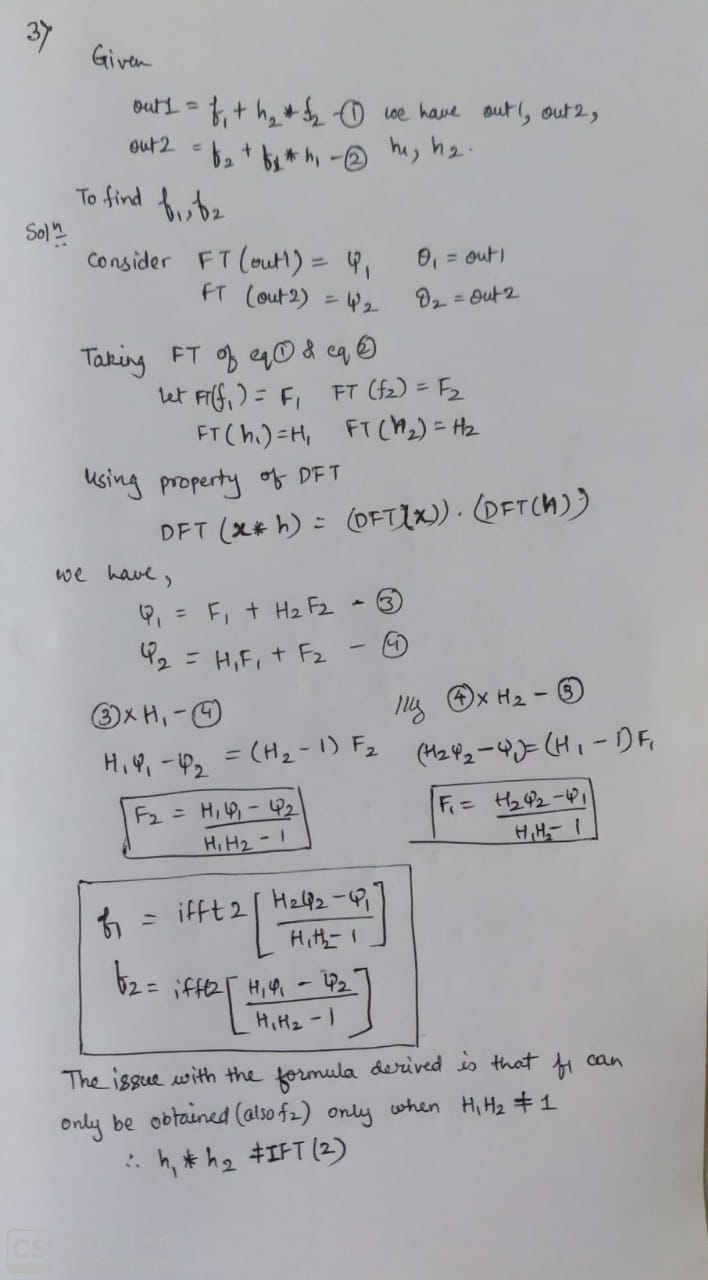 3)
Given
out1 = f₁ + h₂ * f₂ - ① we have out1, out2,
out2 = f₂ + f₁ * h₁ - ② h₁, h₂.
To find f₁, f₂
Solⁿ:
Consider FT(out1) = φ₁ θ₁ = out1
FT (out2) = φ₂ θ₂ = out2
Taking FT of eq① & eq②
let FT(f₁) = F₁ FT (f₂) = F₂
FT(h₁) = H₁ FT(h₂) = H₂
Using property of DFT
DFT (x * h) = (DFT(x)) . (DFT(h))
we have,
φ₁ = F₁ + H₂ F₂ - ③
φ₂ = H₁F₁ + F₂ - ④
③ x H₁ - ④ |||ly ④ x H₂ - ③
H₁φ₁ - φ₂ = (H₂ - 1) F₂ (H₂φ₂ - φ₁) = (H₁ - 1) F₁
F₂ = H₁φ₁ - φ₂ / H₁H₂ - 1 F₁ = H₂φ₂ - φ₁ / H₁H₂ - 1
f₁ = ifft2 [ H₂φ₂ - φ₁ / H₁H₂ - 1 ]
f₂ = ifft2 [ H₁φ₁ - φ₂ / H₁H₂ - 1 ]
The issue with the formula derived is that f₁ can
only be obtained (also f₂) only when H₁H₂ ≠ 1
∴ h₁ * h₂ ≠ IFT (2)
CS